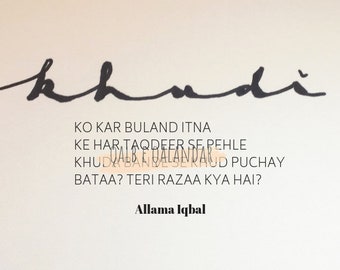 khudi
KO KAR BULAND ITNA
KE HAR TAQDEER SE PEHLE
QALB E QALANDAR
KHUDA BANDE SE KHUD PUCHAY
BATAA? TERI RAZAA KYA HAI?
Allama Iqbal